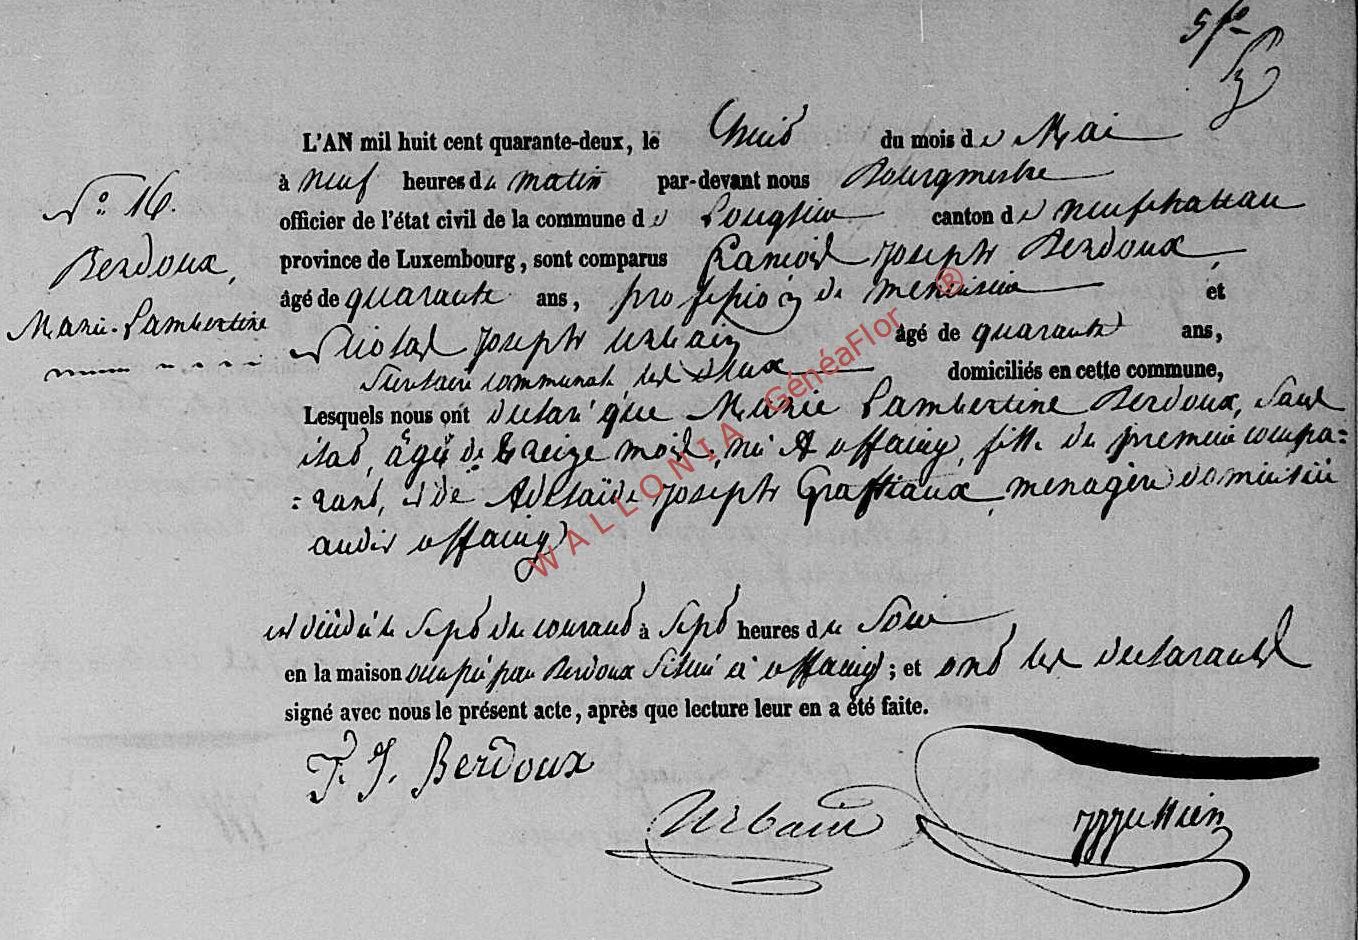 5 fo
L'AN mil huit cent quarante-deux, le huit du mois de Mai
à neuf heures du matin par-devant nous Bourgmestre
N.° 16.
officier de l'état civil de la commune de Longlier canton de neufchateau
Berdoux,
province de Luxembourg, sont comparus François Joseph Berdoux,
âgé de quarante ans, profession de menuisier et
Marie-Lambertine
Nicolas Joseph Urbain âgé de quarante ans,
Secretaire communal les deux domiciliés en cette commune,
Lesquels nous ont declaré que Marie Lambertine Berdoux, sans
état, âgée de treize mois, née à offaing, fille du premier compa=
=rant, et de Adelaïde Joseph Graffiaux, menagère domiciliée
audit offaing
est décédée le sept du courant à sept heures du Soir
en la maison occupée par Berdoux située à offaing ; et ont les declarants
signé avec nous le présent acte, après que lecture leur en a été faite.
F. J. Berdoux
Urbain
WALLONIA GénéaFlor ®